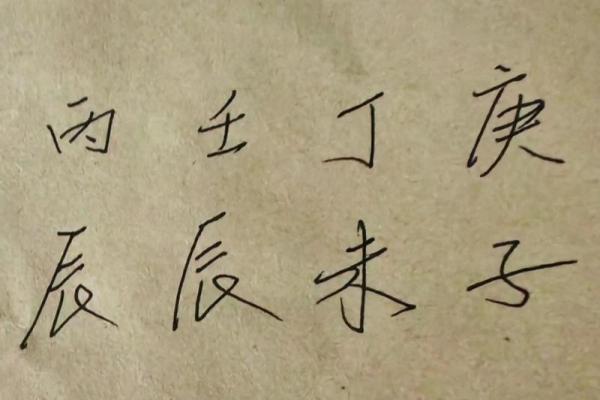 丙 壬 丁 庚
辰 辰 未 子